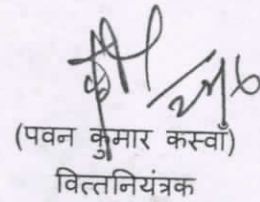 (पवन कुमार कस्वाँ)
वित्तनियंत्रक